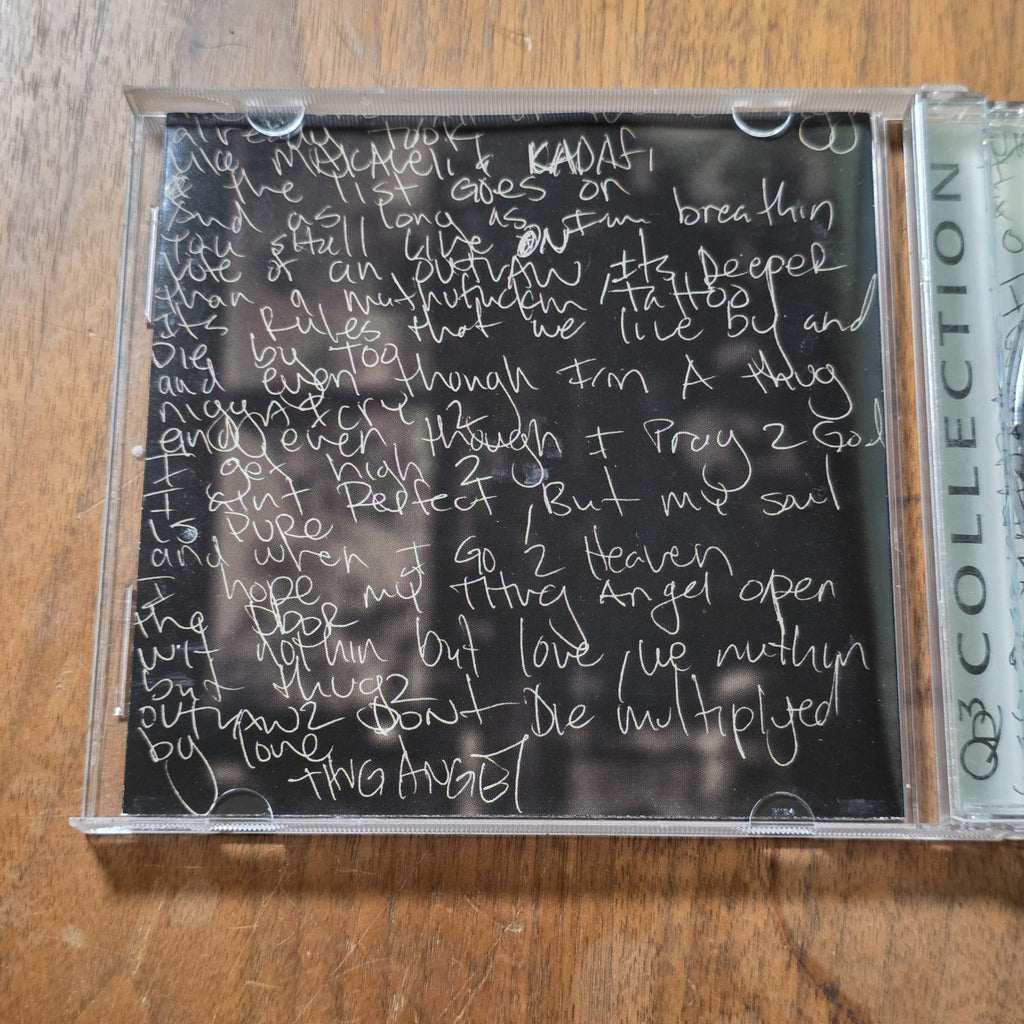 already took
like makaveli & KADAFi
& the list Goes on
and as long as I'm breathin
you shall live ON
vote of an outlaw its Deeper
than a muthufuccin tattoo
its Rules that we live by and
Die by too
and even though I'm A thug
nigga I cry 2
and even though I Pray 2 God
I get high 2
I aint Perfect But my soul
is PURe
and when I Go 2 Heaven
I hope my THug Angel open
the DOOR
wit nothin but love, we nuthin
but thugz
outlawz DONt Die multiplyed
by love,
THUG ANGEL
QD3 COLLECTION